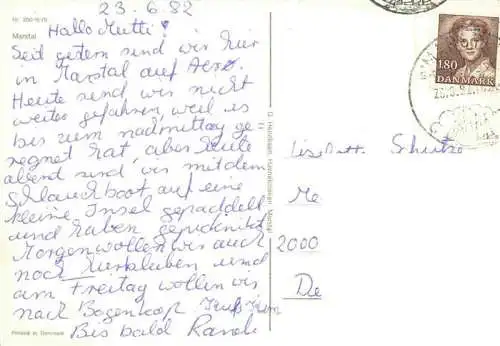 23.6.82
Hallo Mutti!
Seit gestern sind wir hier
in Marstal auf Aerø.
Heute send wir nicht
weiter gefahren weil es
bis zum nadmittag ge
regnet hat, aber heute
abend sind wir mit dem
Schlauchboot auf eine
kleine Insel gepaddelt
und haben gepicknikt
Morgen wollen wir auch
noch hierbleiben und
am Freitag wollen wir
nach Bagenkop
Bis bald
Marstal
Printed in Denmark
1.80
DANMARK
Me
2000
De